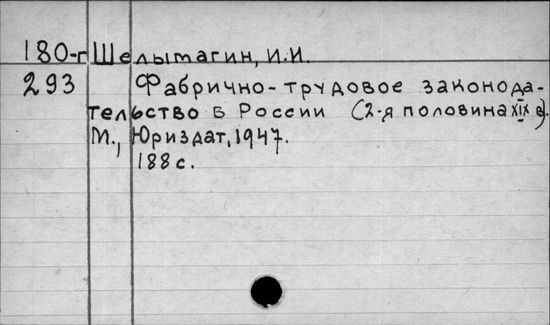 180-г Шелымагин, И.И.
293 Фабрично-трудовое законода-
тельство в России (2-я половина XIX в).
М., Юриздат, 1947.
188 с.